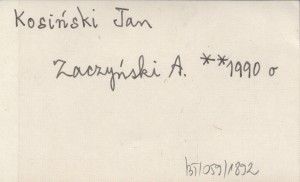 Kosiński Jan
Zaczyński A. **1990 o
/1892